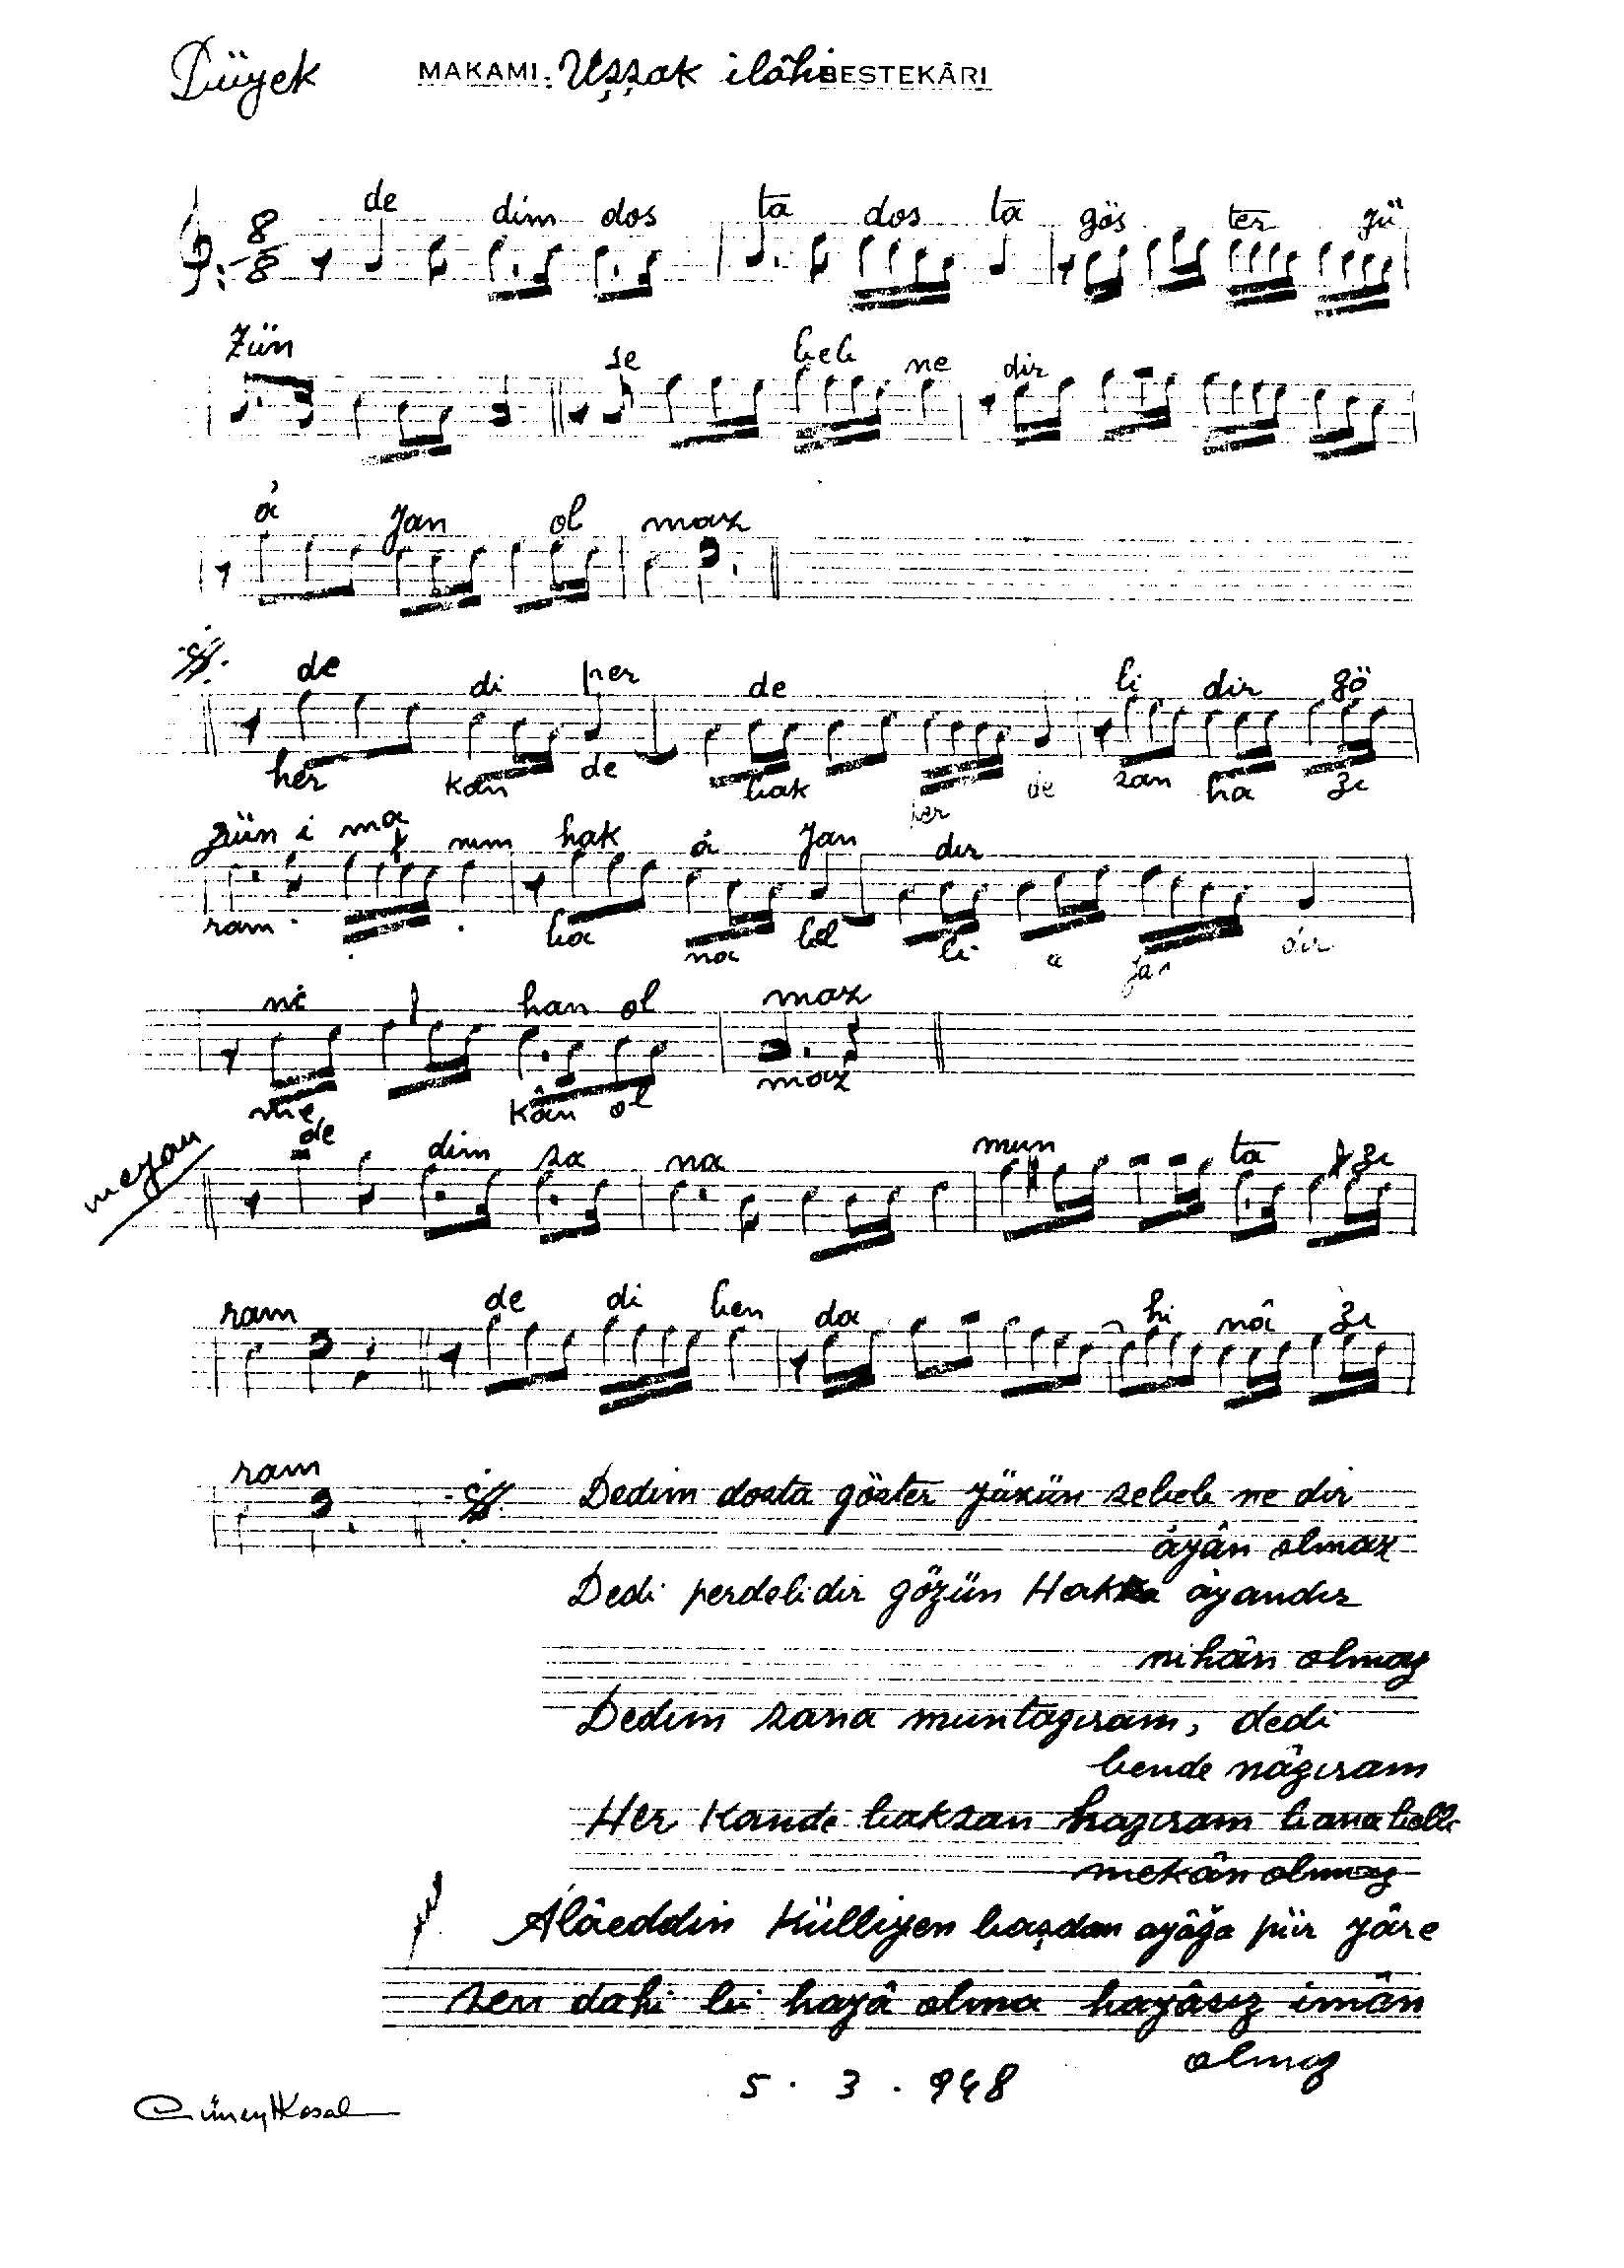 Düyek MAKAMI: Uşşak ilâhi BESTEKÂRI
8/8 de dim dos ta dos ta gös ter yü
zün se beb ne dir
â yan ol maz
de di per de li dir gö
her kan de bak per de san ha zı
zün i ma nım hak â yan dır
ram ba na bel li a yan dır
ni han ol maz
me kân ol maz
meyan de dim sa na mun ta zı
ram de di ben da hi nâ zı
ram Dedim dosta göster yüzün sebeb ne dir
âyân olmaz
Dedi perdelidir gözün Hakka âyandır
nihân olmaz
Dedim sana muntazıram, dedi
bende nâzıram
Her Kande baksan hazıram bana belli
mekân olmaz
Alâeddin Külliyen başdan ayâğa pür yâre
sen dahi bi hayâ olma hayâsız imân
olmaz
5 . 3 . 948
Cüneyt Kosal